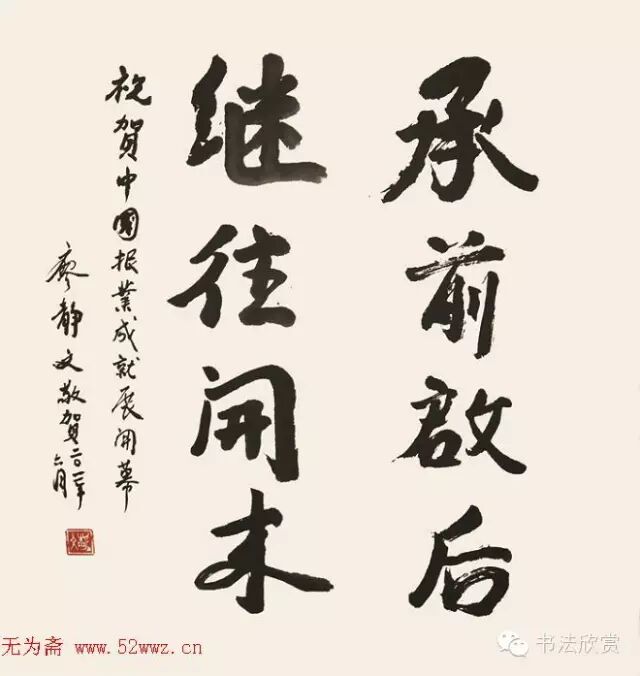 承前啟后
继往開来
祝賀中國报業成就展開幕
廖静文敬賀二〇一一年
六月
无为斋 www.52wwz.cn
书法欣赏